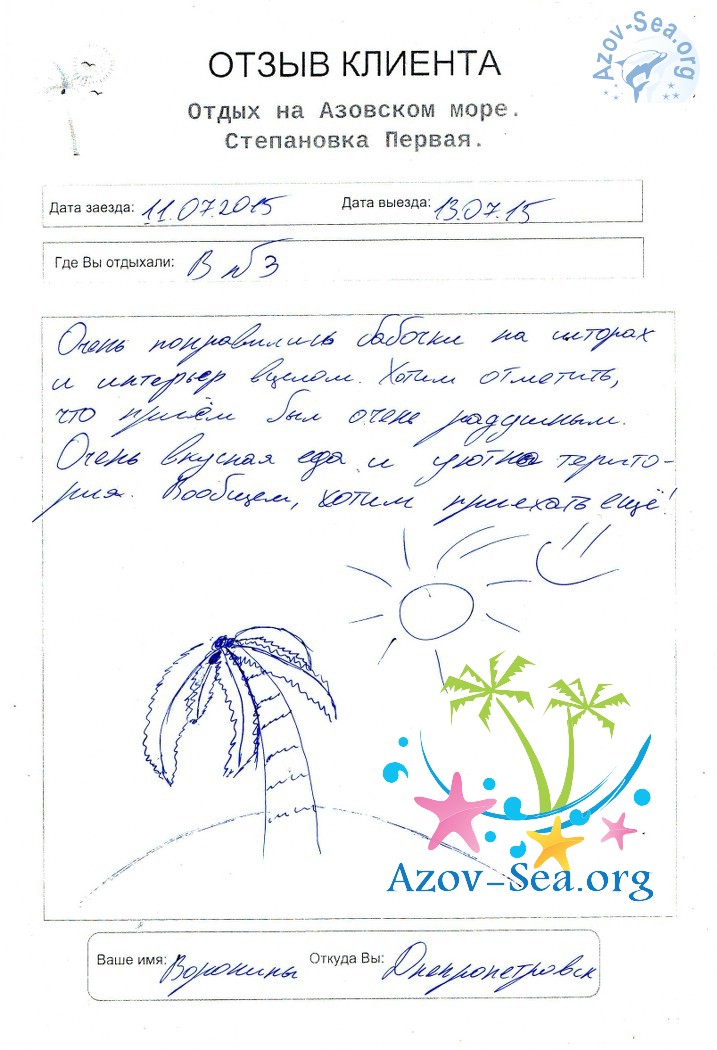 Azov-Sea.org
ОТЗЫВ КЛИЕНТА
Отдых на Азовском море.
Степановка Первая.
Дата заезда: 11.07.2015 Дата выезда: 13.07.15
Где Вы отдыхали: В №3
Очень понравились бабочки на шторах
и интерьер вцелом. Хотим отметить,
что приём был очень радушным.
Очень вкусная еда и уютна терито-
рия. Вообщем, хотим приехать ещё!
Azov-Sea.org
Ваше имя: Воронины Откуда Вы: Днепропетровск